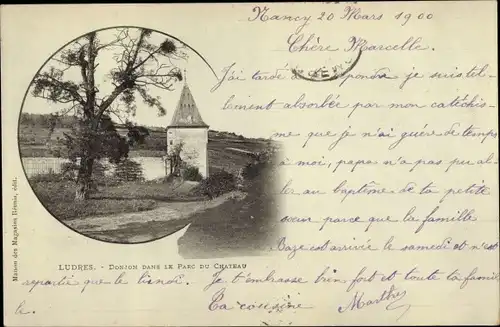 Nancy 20 Mars 1900
Chère Marcelle.
J'ai tardé à répondre je suis tel-
lement absorbée par mon catéchis-
me que je n'ai guère de temps
à moi, papa n'a pas pu al-
ler au baptême de ta petite
sœur parce que la famille
Caze est arrivée le samedi et n'est
repartie que le lundi. Je t'embrasse bien fort et toute ta famil-
le. Ta cousine Marthe
LUDRES. - DONJON DANS LE PARC DU CHATEAU
Maison des Magasins Réunis, édit.